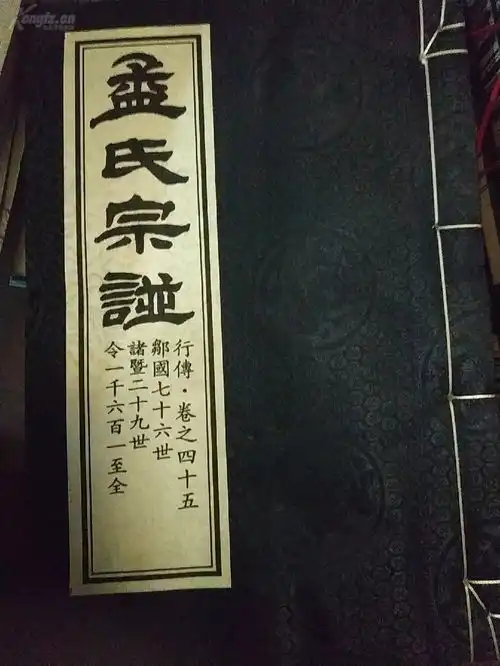 孟氏宗諩
行傳·卷之四十五
鄒國七十六世
諸暨二十九世
令一千六百一至全
Kongfz.cn